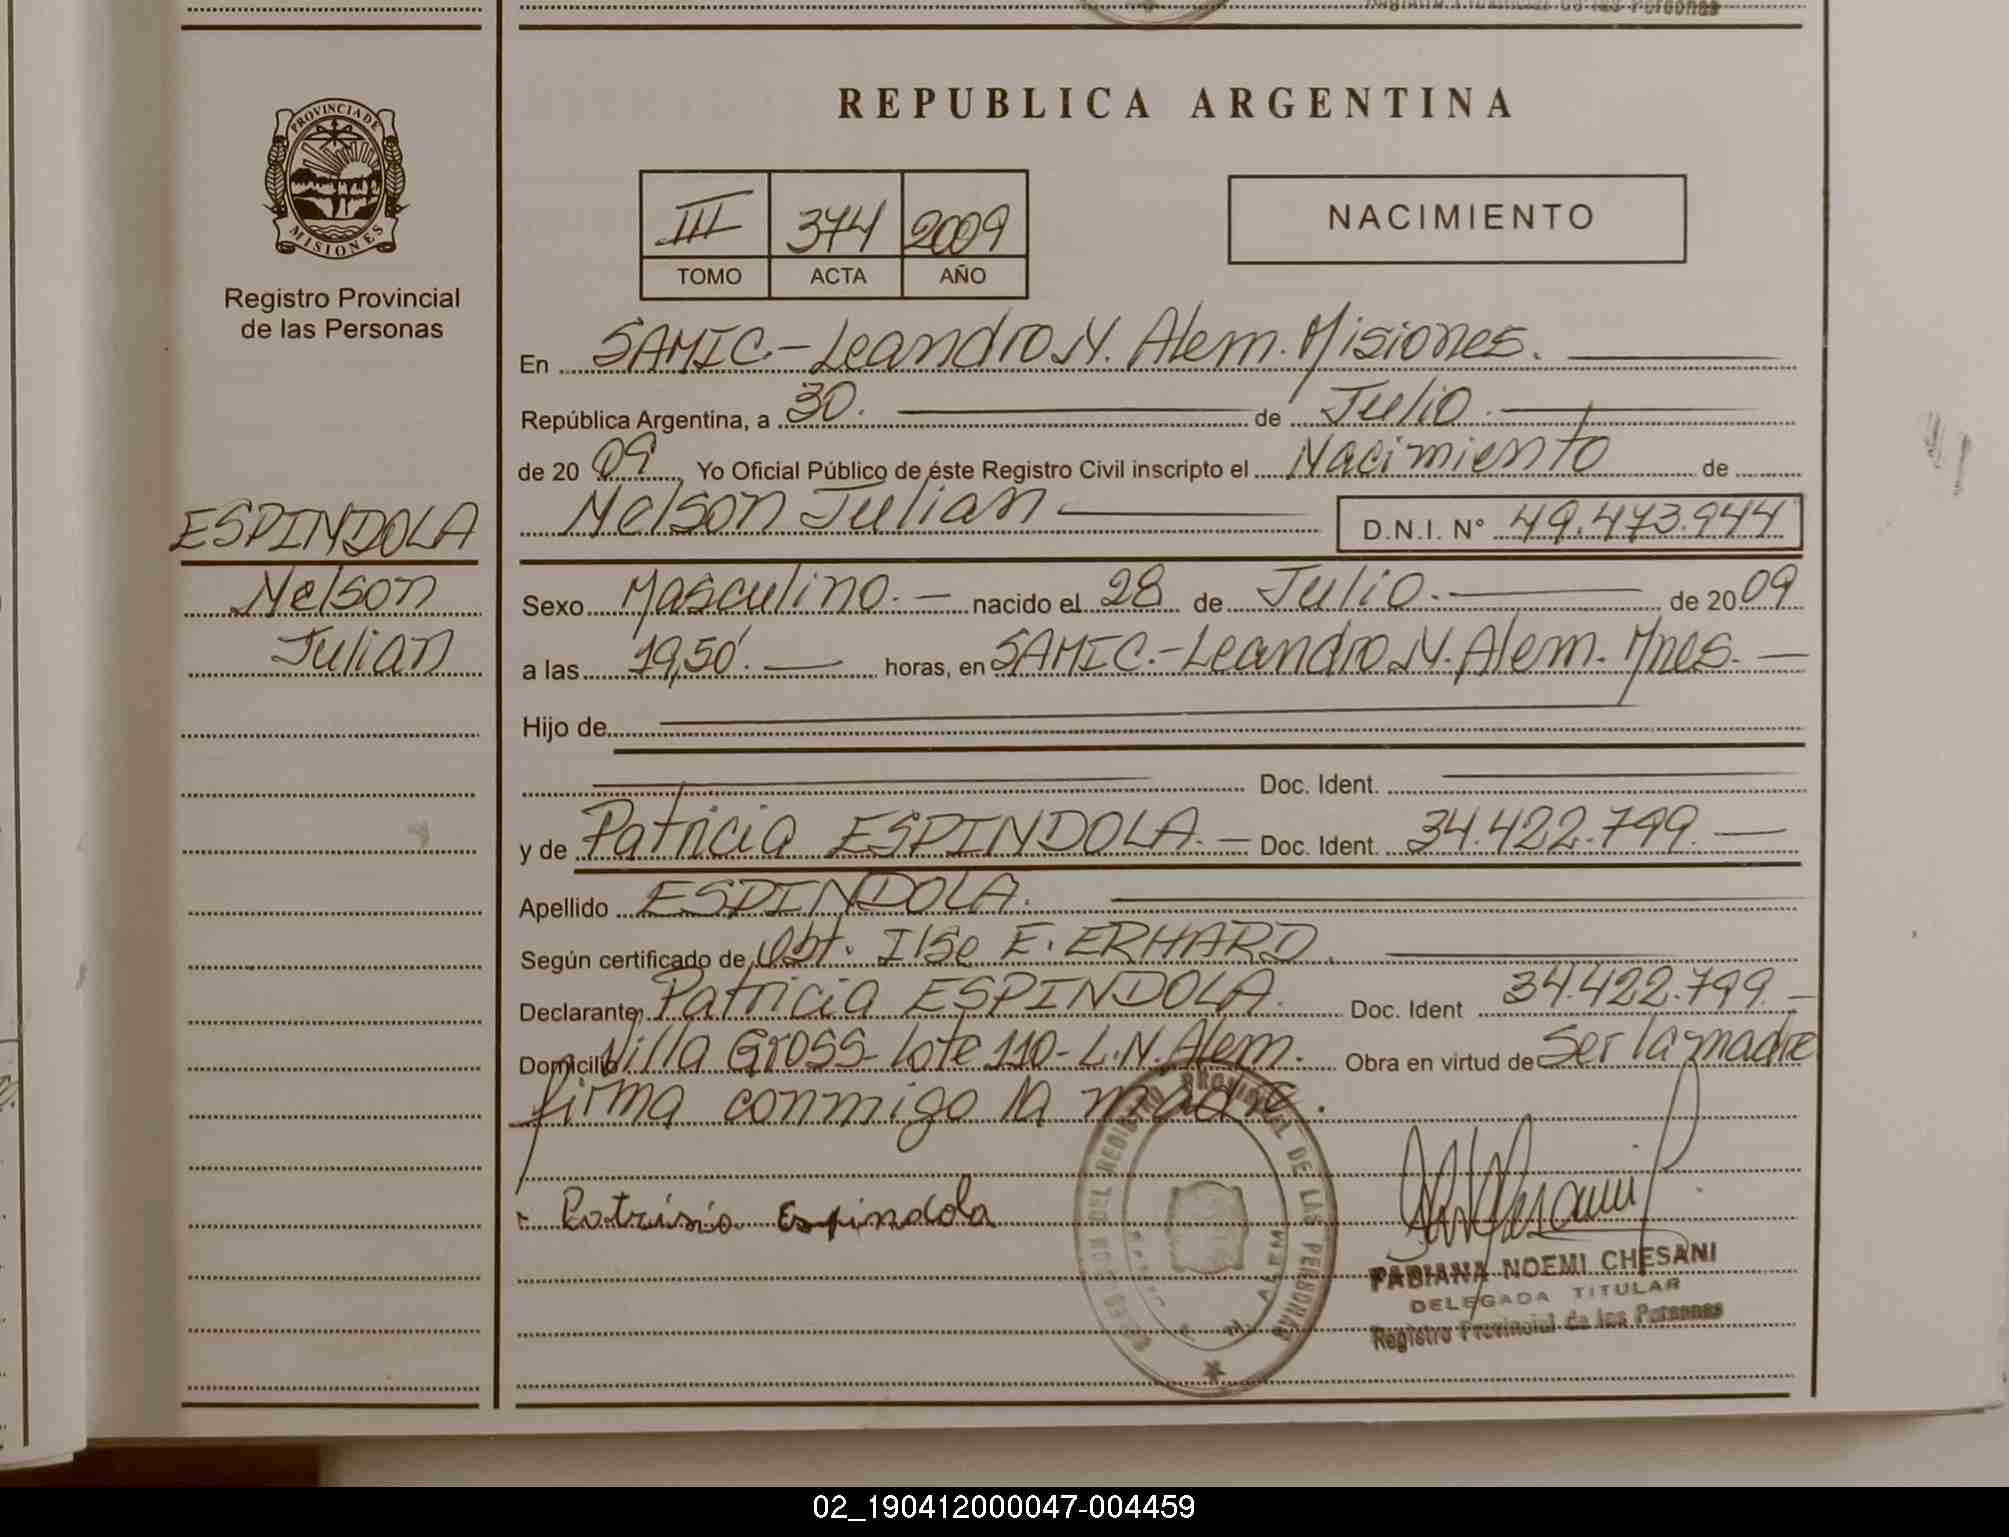 Registro Provincial de las Personas
REPUBLICA ARGENTINA
PROVINCIA DE
MISIONES
Registro Provincial
de las Personas
III 374 2009
TOMO ACTA AÑO
NACIMIENTO
En SAMIC.- Leandro N. Alem. Misiones.
República Argentina, a 30. de Julio.
de 20 09 Yo Oficial Público de éste Registro Civil inscripto el Nacimiento de
Nelson Julian D.N.I. N° 49.473.944
ESPINDOLA
Nelson
Julian
Sexo Masculino.- nacido el 28 de Julio. de 20 09
a las 19,50'. horas, en SAMIC.- Leandro N. Alem. Mnes.
Hijo de
Doc. Ident.
y de Patricia ESPINDOLA.- Doc. Ident. 34.422.799.
Apellido ESPINDOLA.
Según certificado de Obt. Ilse E. ERHARD.
Declarante Patricia ESPINDOLA. Doc. Ident 34.422.799.-
Domicilio Villa Gross- lote 110- L.N. Alem. Obra en virtud de Ser la madre
firma conmigo la madre.
Patrisia Espindola
REGISTRO PROVINCIAL DE LAS PERSONAS
N. ALEM
FABIANA NOEMI CHESANI
DELEGADA TITULAR
Registro Provincial de las Personas
02_190412000047-004459